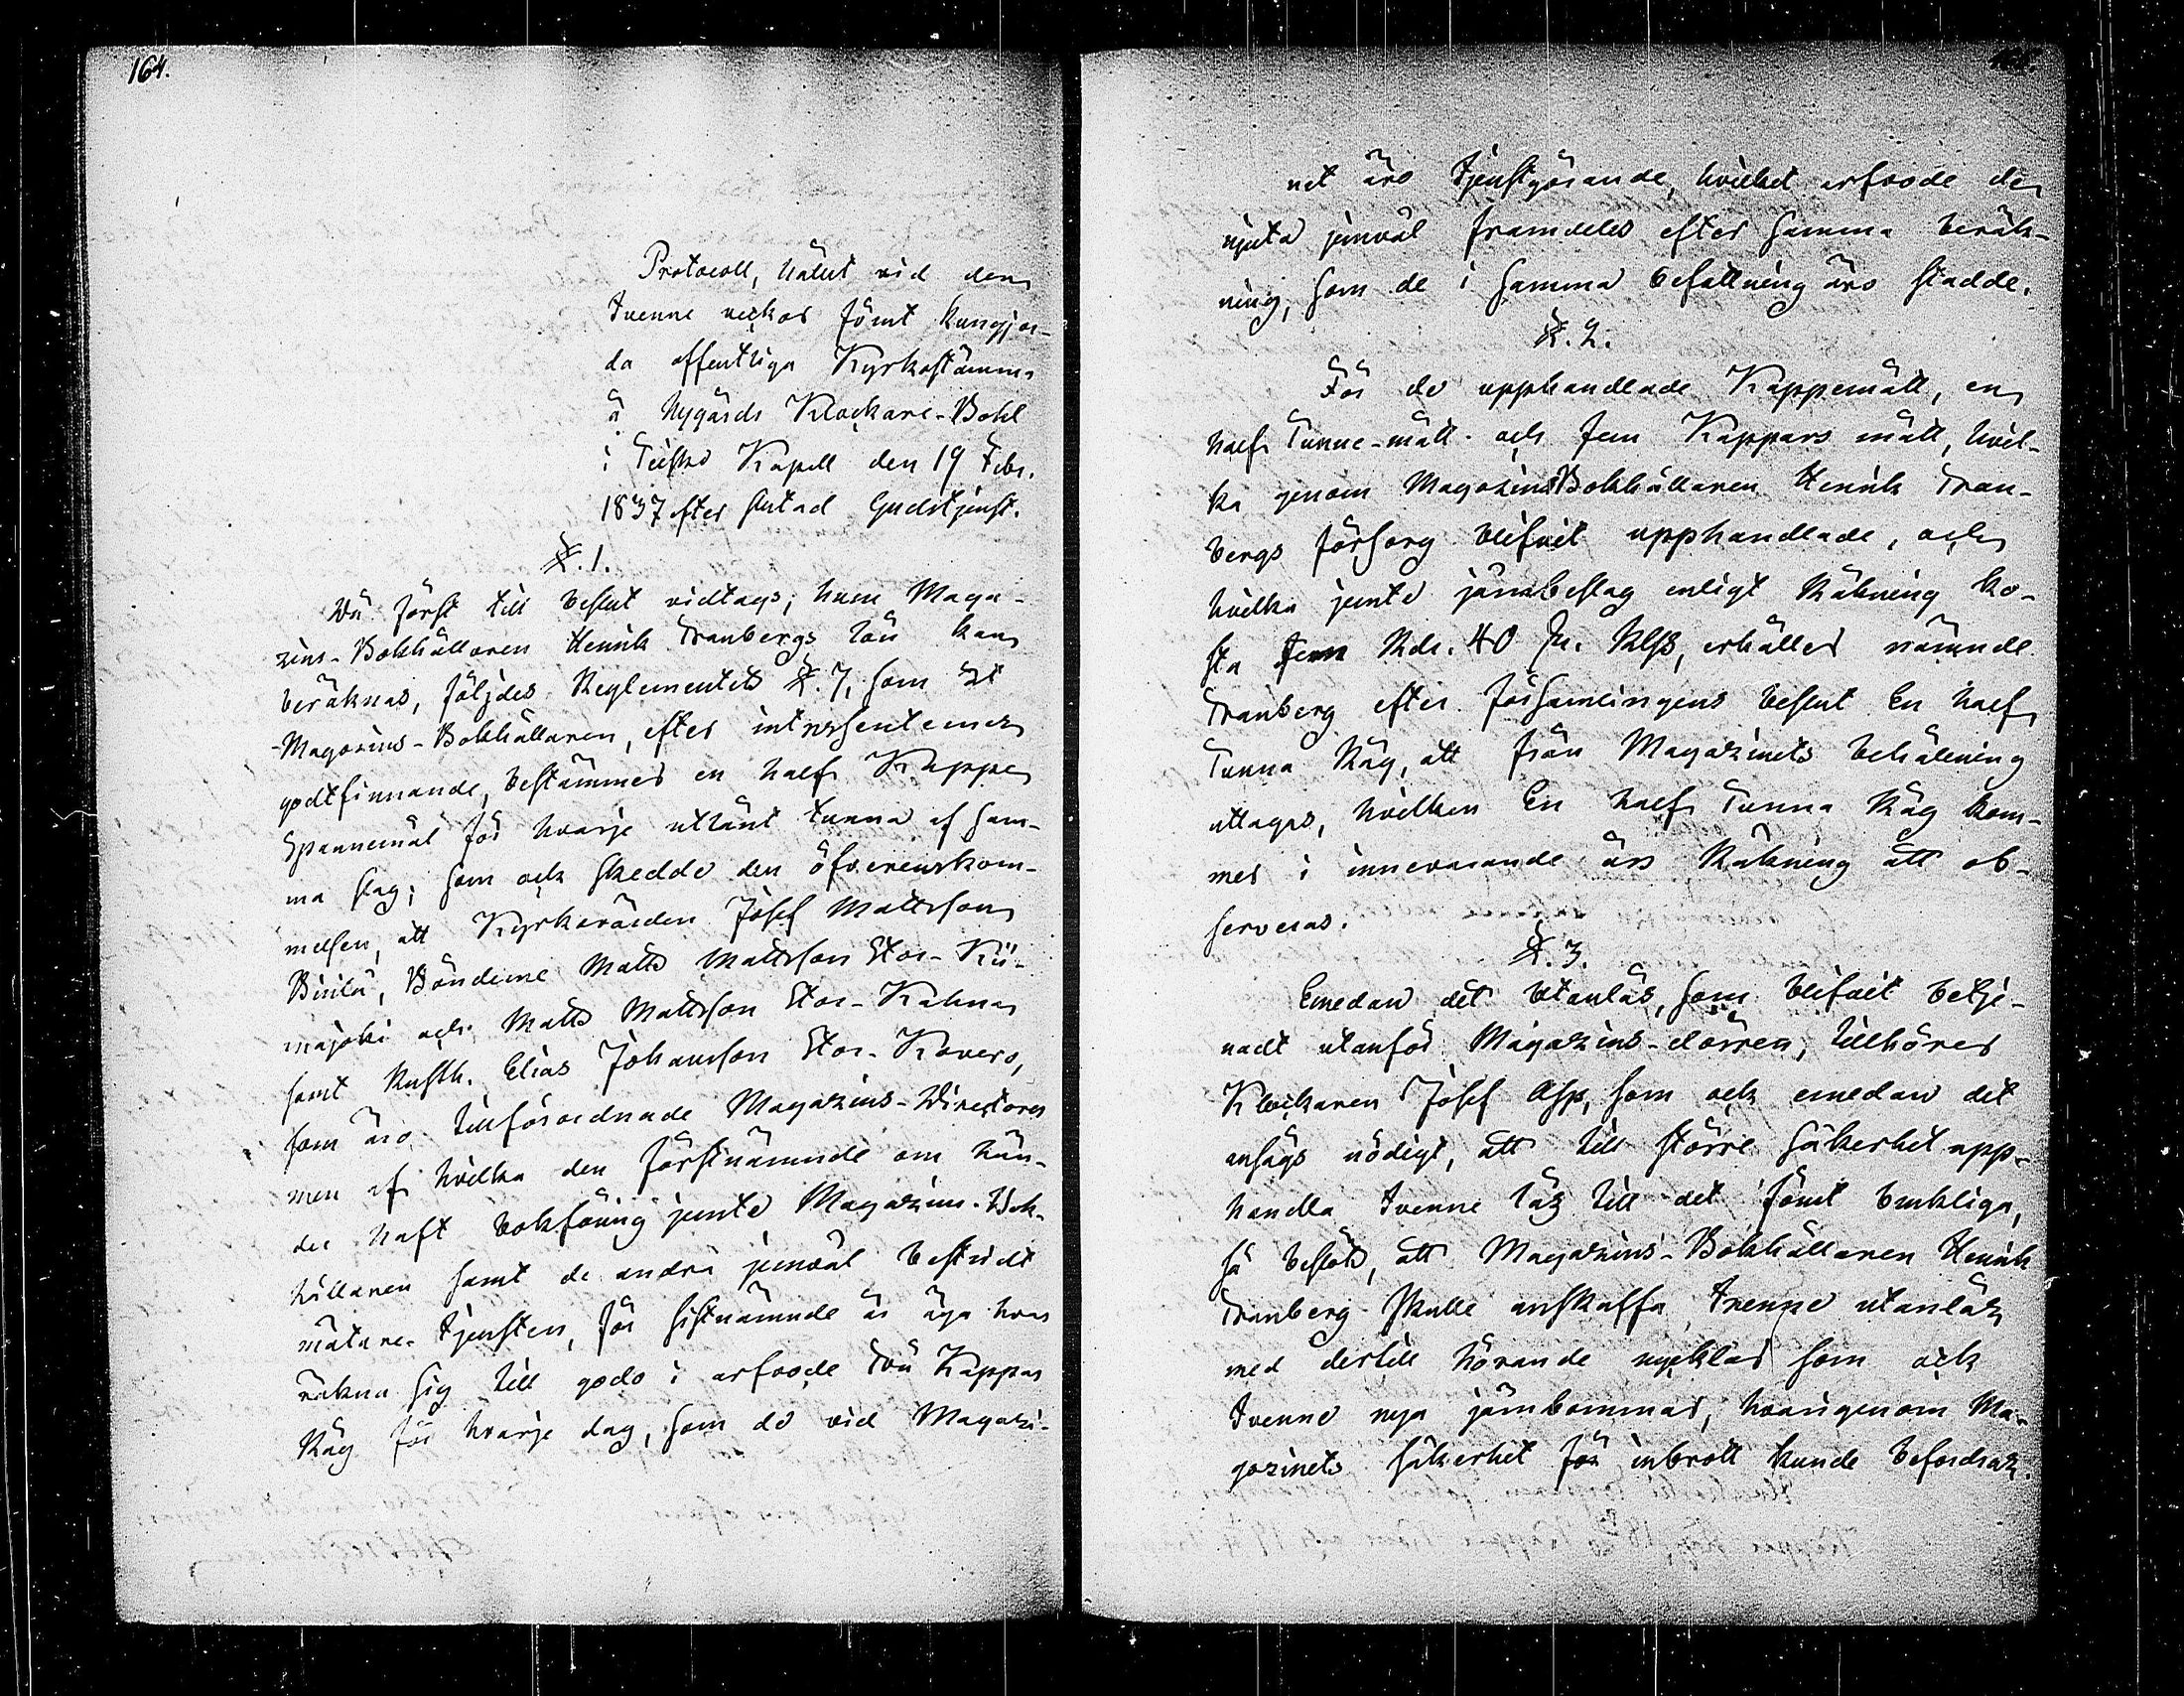 164.
Protocoll, hållit vid den
tvenne veckor förut kungjor-
da offentliga Kyrkostämma
å Nygårds Klockare-Bohl
i Teisko Kapell den 19 Febr.
1837 efter slutad Gudstjenst.
§. 1.
Då först till beslut vidtags, huru Maga-
zins-Bokhållaren Henrik Tranbergs lön kan
beräknas, följdes Reglementets §. 7, som åt
Magazins-Bokhållaren, efter intressenternes
godtfinnande, bestämmer en half Kappe
Spannemål för hvarje utlånt tunna af sam-
ma slag; som ock skedde den öfverenskom-
melsen, att Kyrkovärden Josef Mattsson
Bönderne Matts Mattsson Stor-Kii-
majoki och Matts Mattsson Stor-Kulma
samt Rusth. Elias Johansson Stor-Kovero,
som äro tillförordnade Magazins-Directorer
men af hvilka den förstnämnde om hän-
der haft bokföring jemte Magazins-Bok-
hållaren samt de andra jemväl bestridt
mätare-tjensten, för sistnämnde år äga hvar
räkna sig till godo i arfvode Två Kappar
Råg för hvarje dag, som de vid Magazi-
net äro tjenstgörande, hvilket arfvode de
njuta jemväl framdeles efter samma beräk-
ning, som de i samma befattning äro stadde.
§. 2.
För de upphandlade Kappemått, en
half Tunne-mått och fem Kappars mått, hvil-
ka genom Magazins Bokhållaren Henrik Tran-
bergs försorg blifvit upphandlade, och
hvilka jemte järnbeslag enligt Räkning ko-
sta Fem Rdr. 40 sk. Rgs, erhåller nämnde
Tranberg efter Församlingens beslut En half
Tunna Råg, att från Magazinets behållning
uttagas, hvilken En half Tunna Råg kom-
mer i innevarande års Räkning att ob-
serveras.
§. 3.
Emedan det utanlås, som blifvit betje-
nadt utanför Magazins-dörren, tillhörer
Klockaren Josef Asp, som ock emedan det
ansågs nödigt, att till större säkerhet upp-
handla tvenne lås till det förut brukliga,
så beslöts, att Magazins-Bokhållaren Henrik
Tranberg skulle anskaffa trenne utanlås
med dertill hörande nycklar som ock
tvenne nya järnbommar, hvarigenom Ma-
gazinets säkerhet för inbrott kunde befordras.